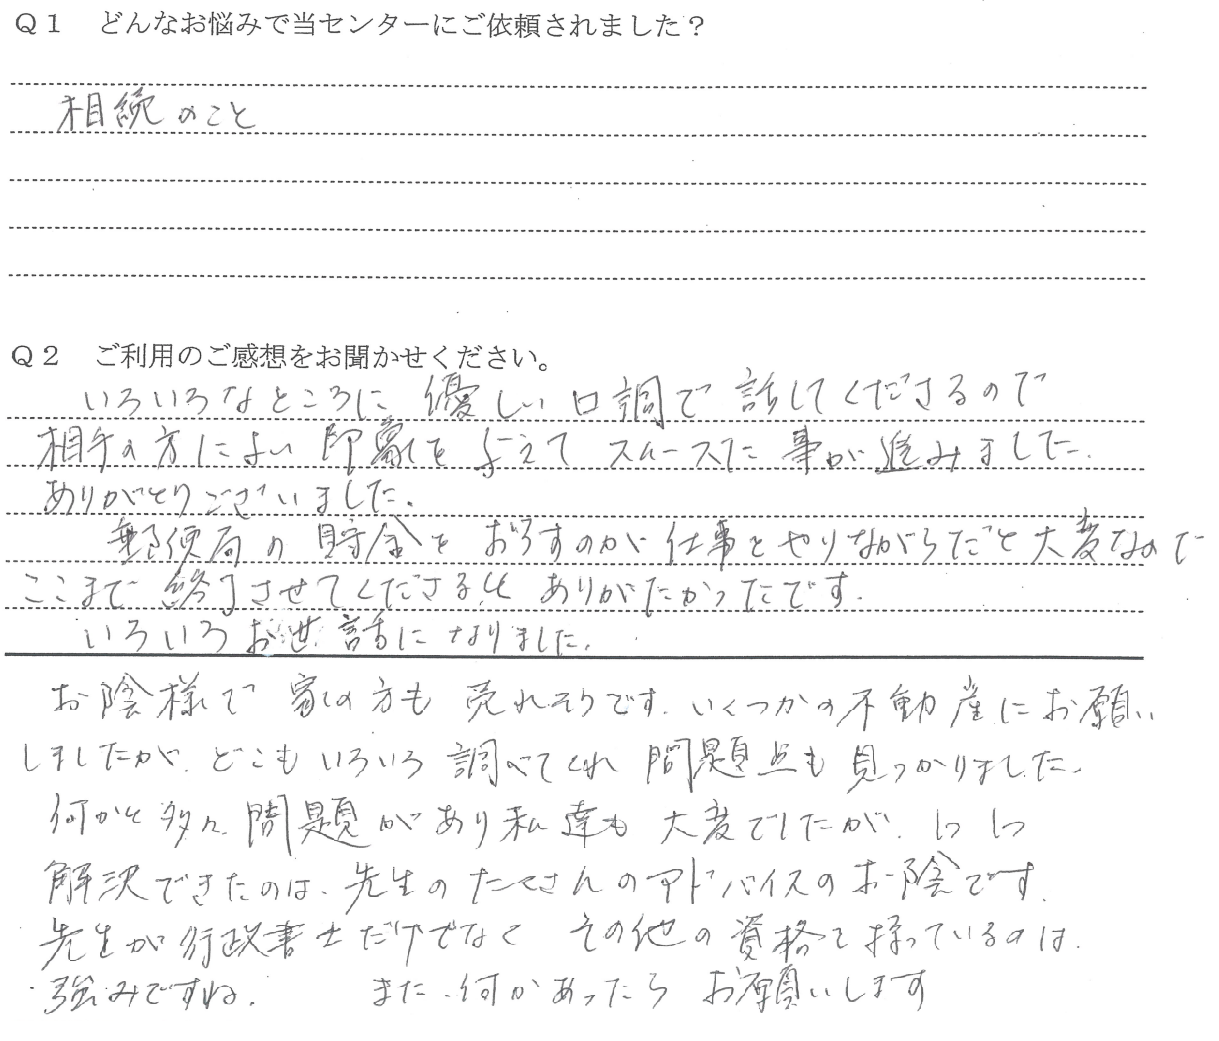 Q1 どんなお悩みで当センターにご依頼されました?
相続のこと
Q2 ご利用のご感想をお聞かせください。
いろいろなところに 優しい口調で 話してくださるので
相手の方によい 印象を 与えて スムースに 事が進みました。
ありがとうございました。
郵便局の 貯金を おろすのが 仕事をやりながらだと 大変なので
ここまで 終了させてくださるん ありがたかったです。
いろいろお世話になりました。
お陰様で 家の方も 売れそうです。いくつかの不動産にお願い
しましたが、どこもいろいろ 調べてくれ 問題点も 見つかりました。
何かと多々 問題があり私達も 大変でしたが、1つ1つ
解決できたのは、先生のたくさんのアドバイスのお陰です。
先生が行政書士だけでなく その他の資格を持っているのは、
強みですね。 また、何かあったら お願いします